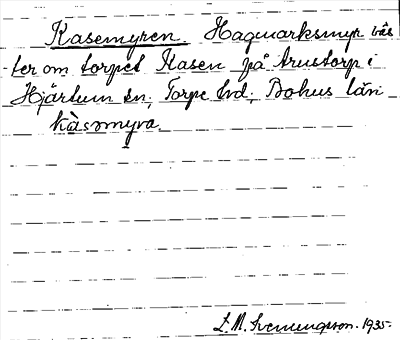 Kasemyren. Hagmarksmyr väs
ter om torpet Kasen på Arustorp i
Hjärtum sn, Torpe hd, Bohus län
kàsəmyra
L. M. Svenungsson. 1935.